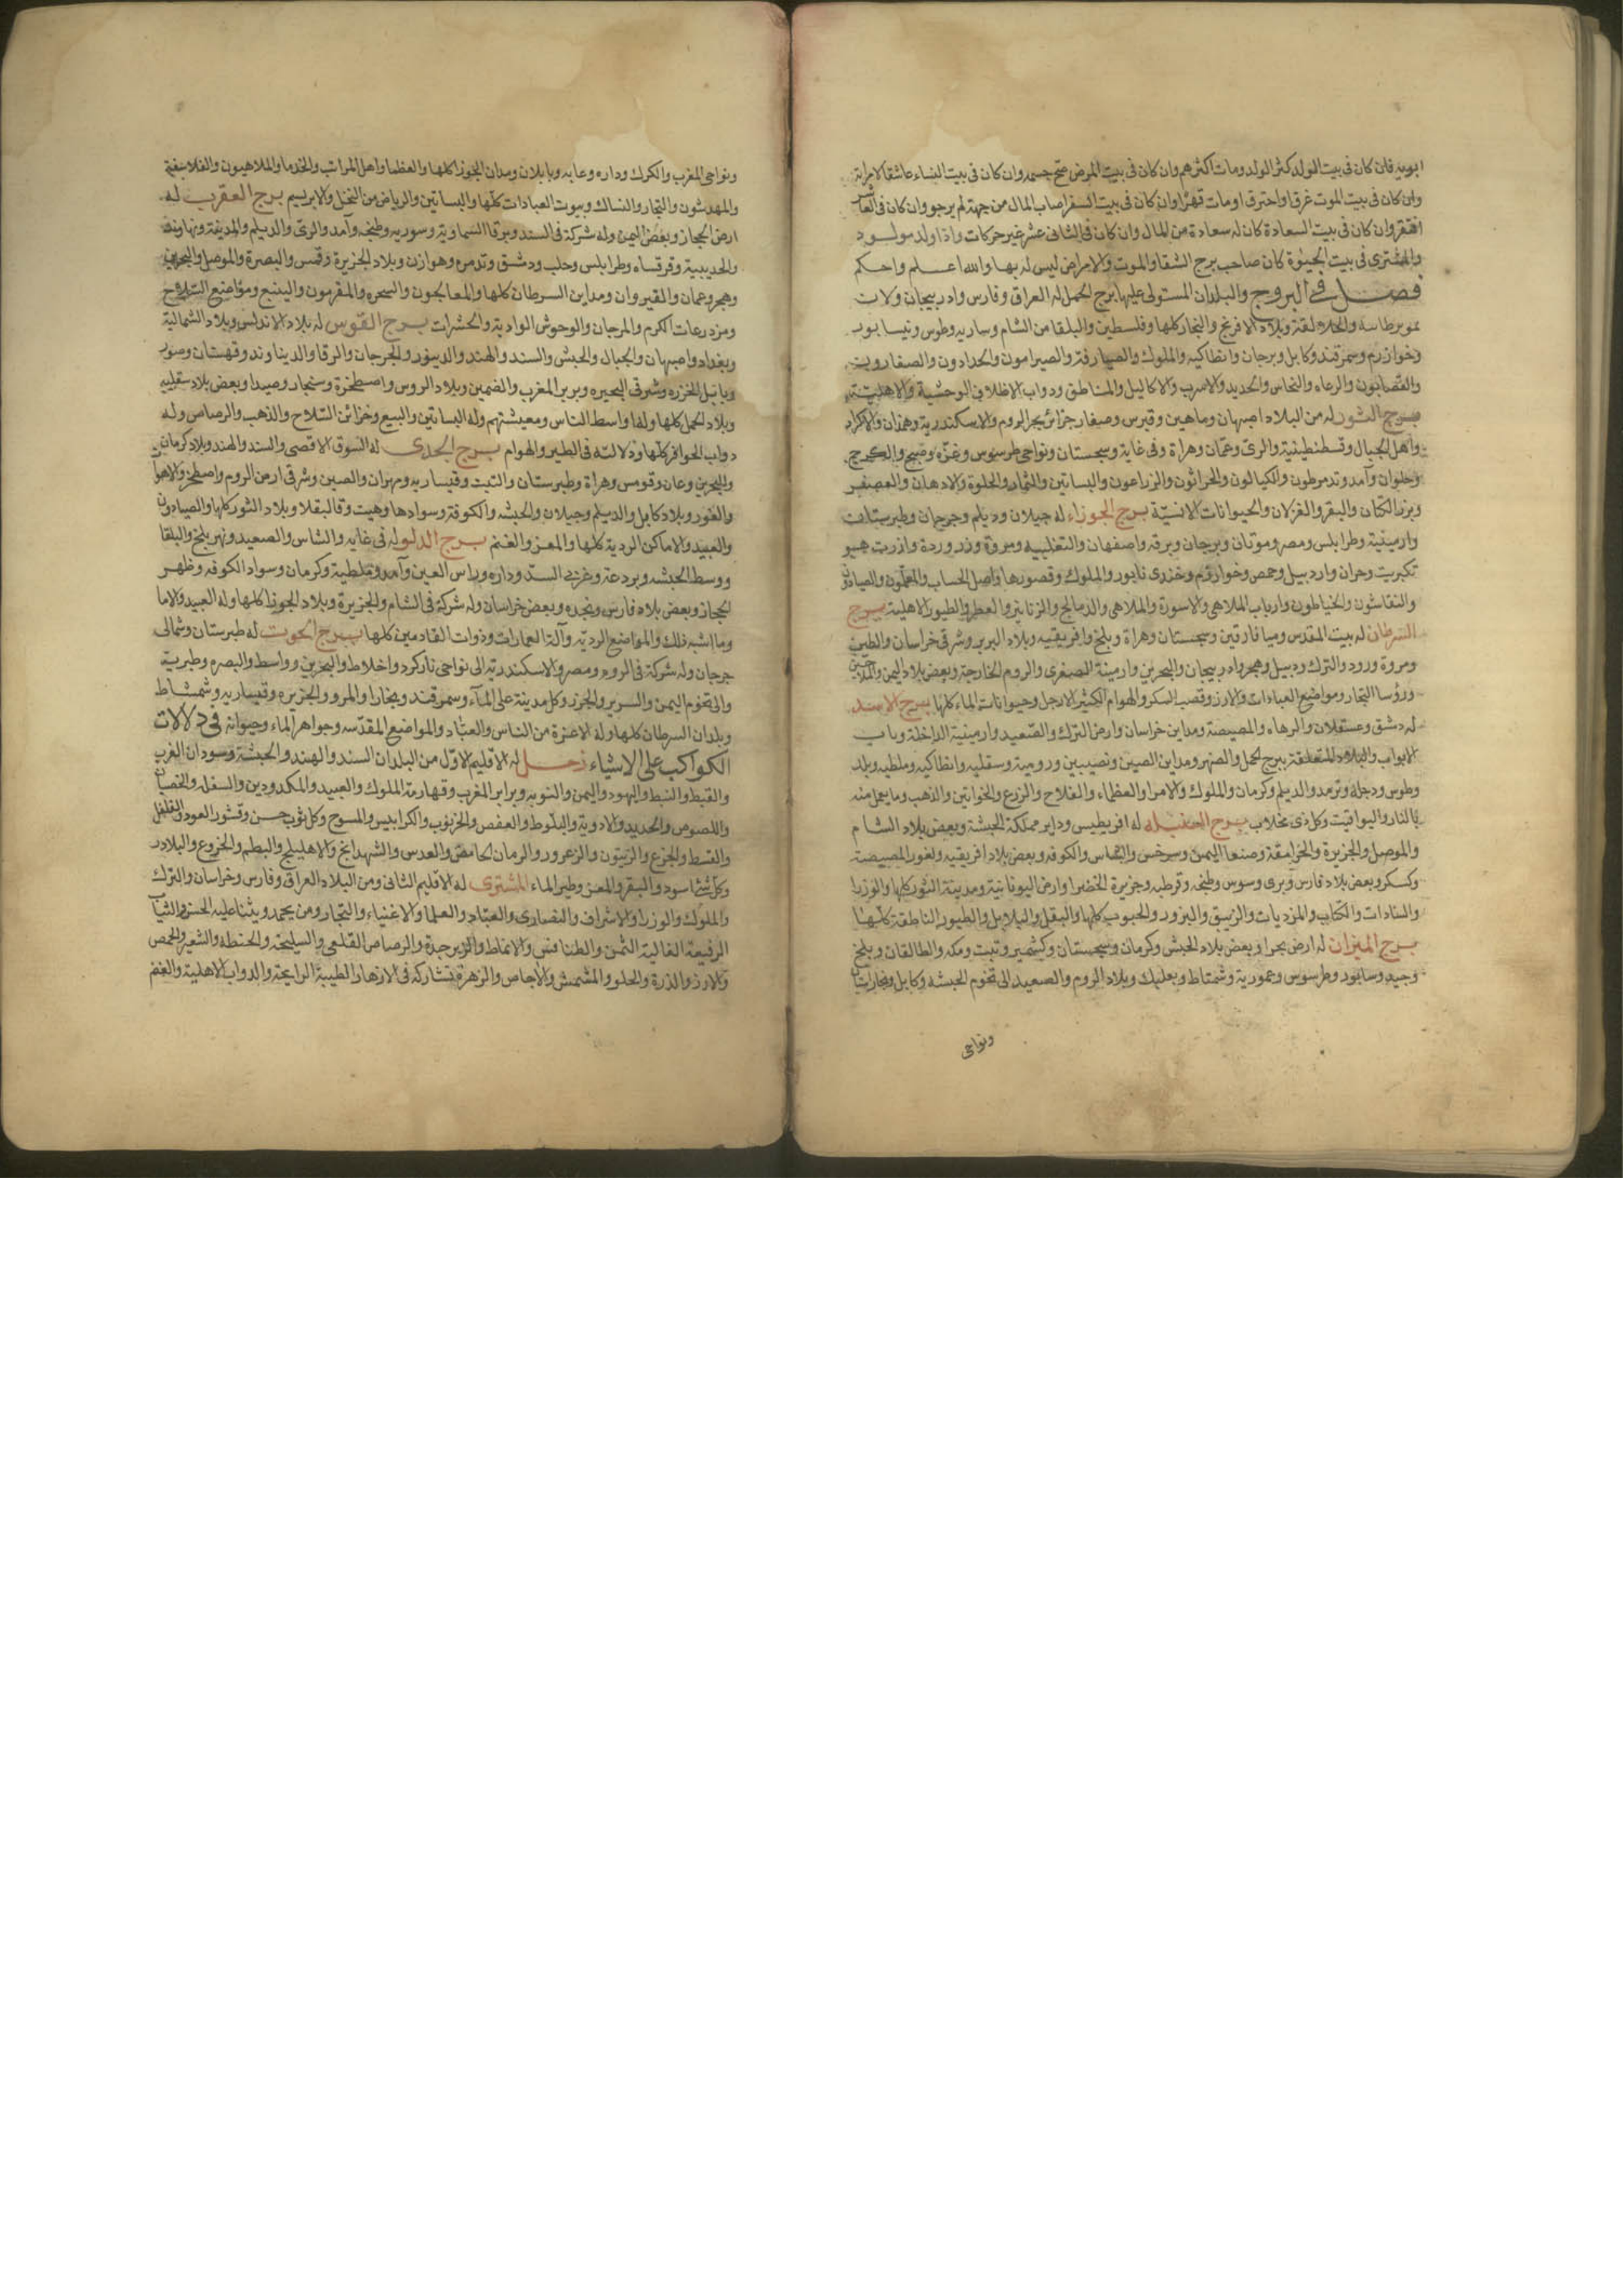 ابويه فان كان فى بيت الولد كثر الولد ومات اكثرهم وان كان فى بيت المرض صح جسمه وان كان فى بيت النساء عاشقا لامراته
وان كان فى بيت الموت غرقا واحترق اومات قهرا وان كان فى بيت السفر اصاب المال من جهة لم يرجو وان كان فى العاشر
افتقر وان كان فى بيت السعادة كان له سعادة من المال وان كان فى الثانى عشر غير حركات واذا ولد مولود
والمشترى فى بيت الحيوة كان صاحب برج الشقا والموت والامراض ليس له بها والله اعلم واحكم
فصل فى البروج والبلدان المستولى عليها برج الحمل له العراق وفارس وادربيجان ولات
وبلاد الافرنج والتجار كلها وفلسطين والبلقا من الشام وساريه وطوس ونيسابور
وخوازرم وسمرقند وكابل وبرجان وانطاكيه والملوك والصيارفة والصيرامون والحدادون والصفارويت
والقصابون والرعاه والنحاس والحديد والاسرب والاكاليل والمناطق ودواب الاظلاف الوحشية والاهلية
برج الثور له من البلاد اصبهان وماهين وقبرس وصغار جزائر بحر الروم والاسكندرية وهمذان والاكراد
واهل الجبال وقسطنطينية والرى وعمان وهراة وفى غاية وسجستان ونواحى طرسوس وغزه ومنبج والكرج
وحلوان وآمد وتدمر طون والكيالون والحراثون والزراعون والبساتين والثمار والحلوة والادهان والعصفر
وبزر الكتان والبقر والغزلان والحيوانات الانسيّة برج الجوزاء له جيلان وديلم وجرجان وطبرستان
وارمينية وطرابلس ومصر وموتان وبرجان وبرقه واصفهان والتغلبيه ومروة وزروردة وازرت هبو
تكريت وحران واردبيل وحمص وخوارزم وخزرى نابور والملوك وقصورها واصل الحساب والمعلمون والصيادون
والنقاشون والخياطون وارباب الملاهى والاسورة والملاهى والدمالج والزنانير والعطر والطيور الاهلية برج
السرطان له بيت المقدس وميافارقين وسجستان وهراة وبلخ وافريقيه وبلاد البربر وشرقى خراسان والطبى
ومروة ورود والترك ودبيل وهجر وادربيجان والبحرين وارمينة الصغرى والروم الخارجة وبعض بلاد اليمن
ورؤسا التجار ومواضع العبادات والارز وقصب السكر والهوام الكثير الارجل وحيوانات الماء كلها برج الاسد
له دمشق وعسقلان والرهاء والمصيصة ومداين خراسان وارض الترك والصعيد وارمينية الداخلة وباب
الابواب والبلاد المتعلقة ببرج الحمل والصنهر ومداين الصين ونصيبين ورومية وسقليه وانطاكيه وملطيه وبلد
وطوس ودجلة وترمد والديلم وكرمان والملوك والامرا والعظماء والفلاح والزرع والخواتين والذهب وما يعمل منه
بالنار واليواقيت وكل ذى مخلاب برج السنبله له افريطيس وداير مملكة الحبشة وبعض بلاد الشام
والموصل والجزيرة والخرامقة وصنعا اليمن وسرخس والشاس والكوفه وبعض بلاد افريقيه ولغور المصيصة
وكسكر وبعض بلاد فارس وبرى وسوس وطنجه وقرطبه وجزيرة الخضرا وارض اليونانية ومدينة الثور كلها والوزرا
والسادات والكتاب والمزديات والزيبق والبزور والحبوب كلها والبقل والبلابل والطيور الناطقة كلها
برج الميزان له ارض بحرا وبعض بلاد الحبش وكرمان وسجستان وكشمير وتبت ومكه والطالقان وبلخ
وجيد وسابود وطرسوس وعمورية وشمتاط وبعلبك وبلاد الروم والصعيد الى تخوم الحبشه وكابل وبخارستان
ونواحى
ونواحى المغرب والكرك وداره وعابه وبابلان ومدان الجوزا كلها والعظما واهل المراتب والخدما والملاهيون والفلاسفة
والمهدسون والتجار والنساك وبيوت العبادات كلها والبساتين والرياض من النخل والابريسم برج العقرب له
ارض الحجاز وبعض اليمن وله شركة فى السند وبرقا السماوية وسوريه وطنجه وآمد والرى والديلم والمدينة ونهاوند
والحديبية وقرقساه وطرابلس وحلب ودمشق وتدمره وهوازن وبلاد الجزيرة وقمس والبصرة والموصل والبحرين
وهجر وعمان والقيروان ومداين السرطان كلها والمعالجون والسحره والمقرمون والينبع ومواضع السلاح
ومزدرعات الكرم والمرجان والوحوش الوادية والحشرات برج القوس له بلاد الاندلس وبلاد الشمالية
وبغداد واصبهان والجبال والحبش والسند والهند والدينور والجرجان والرقا والديناوند وقهستان وصور
وبابل الخزره وشرقى البحيره وبربر المغرب والضمين وبلاد الروس واصطخرة وسنجار وصيدا وبعض بلاد سقليه
وبلاد الحمل كلها وله اواسط الناس ومعيشتهم وله البساتين والبيع وخزائن السلاح والذهب والرصاص وله
دواب الحوافر كلها ودلالته فى الطير والهوام برج الجدى له السوق الاقصى والسند والهند وبلاد كرمان
والبحرين وعان وقومس وهراة وطبرستان والتبت وقيساريه ومهران والصين وشرقى ارض الروم واصطخر والاهواز
والغور وبلاد كابل والديلم وجيلان والحبشه والكوفة وسوادها وهيت وقالبقلا وبلاد الثور كلها والصيادون
والعبيد والاماكن الردية كلها والمعز والغنم برج الدلو له فى غايه والشاس والصعيد ونهر بلخ والبلقا
ووسط الحبشه وبردعة وغربى السند وداره وراس العين وآمد وملطية وكرمان وسواد الكوفه وظهر
الحجاز وبعض بلاد فارس ونجده وبعض خراسان وله شركة فى الشام والجزيرة وبلاد الجوزا كلها وله العبيد والاما
وما اشبه ذلك والمواضع الرديه وآلة العمارات وذوات القادمين كلها برج الحوت له طبرستان وشمالى
جرجان وله شركة فى الروم ومصر والاسكندرية الى نواحى تازكرد واخلاط والبحرين وواسط والبصره وطبرية
والى تخوم اليمن والسرير والجزر وكل مدينة على الماء وسمرقند وبخارا والمرو والجزيره وقيساريه وشمشاط
وبلدان السرطان كلها وله الاعزة من الناس والعباد والمواضع المقدسه وجواهر الماء وحيوانه فى دلالات
الكواكب على الاشياء زحل له الاقليم الاول من البلدان السند والهند والحبشة وسودان الغرب
والقبط والنبط واليهود واليمن والنوبه وبرابر المغرب وقهارمة الملوك والعبيد والمكدودين والسفله والخصيان
واللصوص والحديد والادوية والبلوط والعفص والخرنوب والكرابيس والمسوح وكل ثوب خشن وقشور العود والفلفل
والقسط والجزع والزيتون والزعرور والرمان الحامض والعدس والشهدانج والاهليلج والبطم والخروع والبلادر
وكل شئ اسود والبقر والمعز وطير الماء المشترى له الاقليم الثانى ومن البلاد العراق وفارس وخراسان والترك
والملوك والوزرا والاشراف والنصارى والعباد والعلما والاغنياء والتجار ومن يحمد ويثنا عليه الحسن والثياب
الرفيعة الغالية الثمن والطنافس والانماط والزبرجدة والرصاص القلعى والسليخه والحنطة والشعير والحمص
والارز والذرة والحلو والمشمش والاجاص والزهرة تشاركه فى الازهار الطيبة الرايحة والدواب الاهلية والغنم